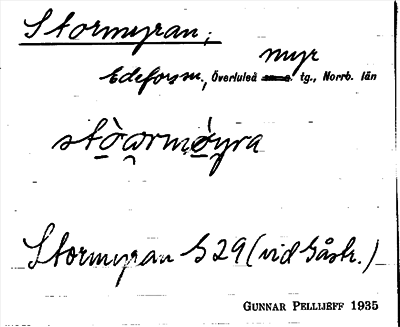 Stormyran;
myr
Edeforsm., Överluleå tg., Norrb. län
stò̠a̯rmø̠̀yra
Stormyran G 29 (vid Gåstr.)
GUNNAR PELLIJEFF 1935